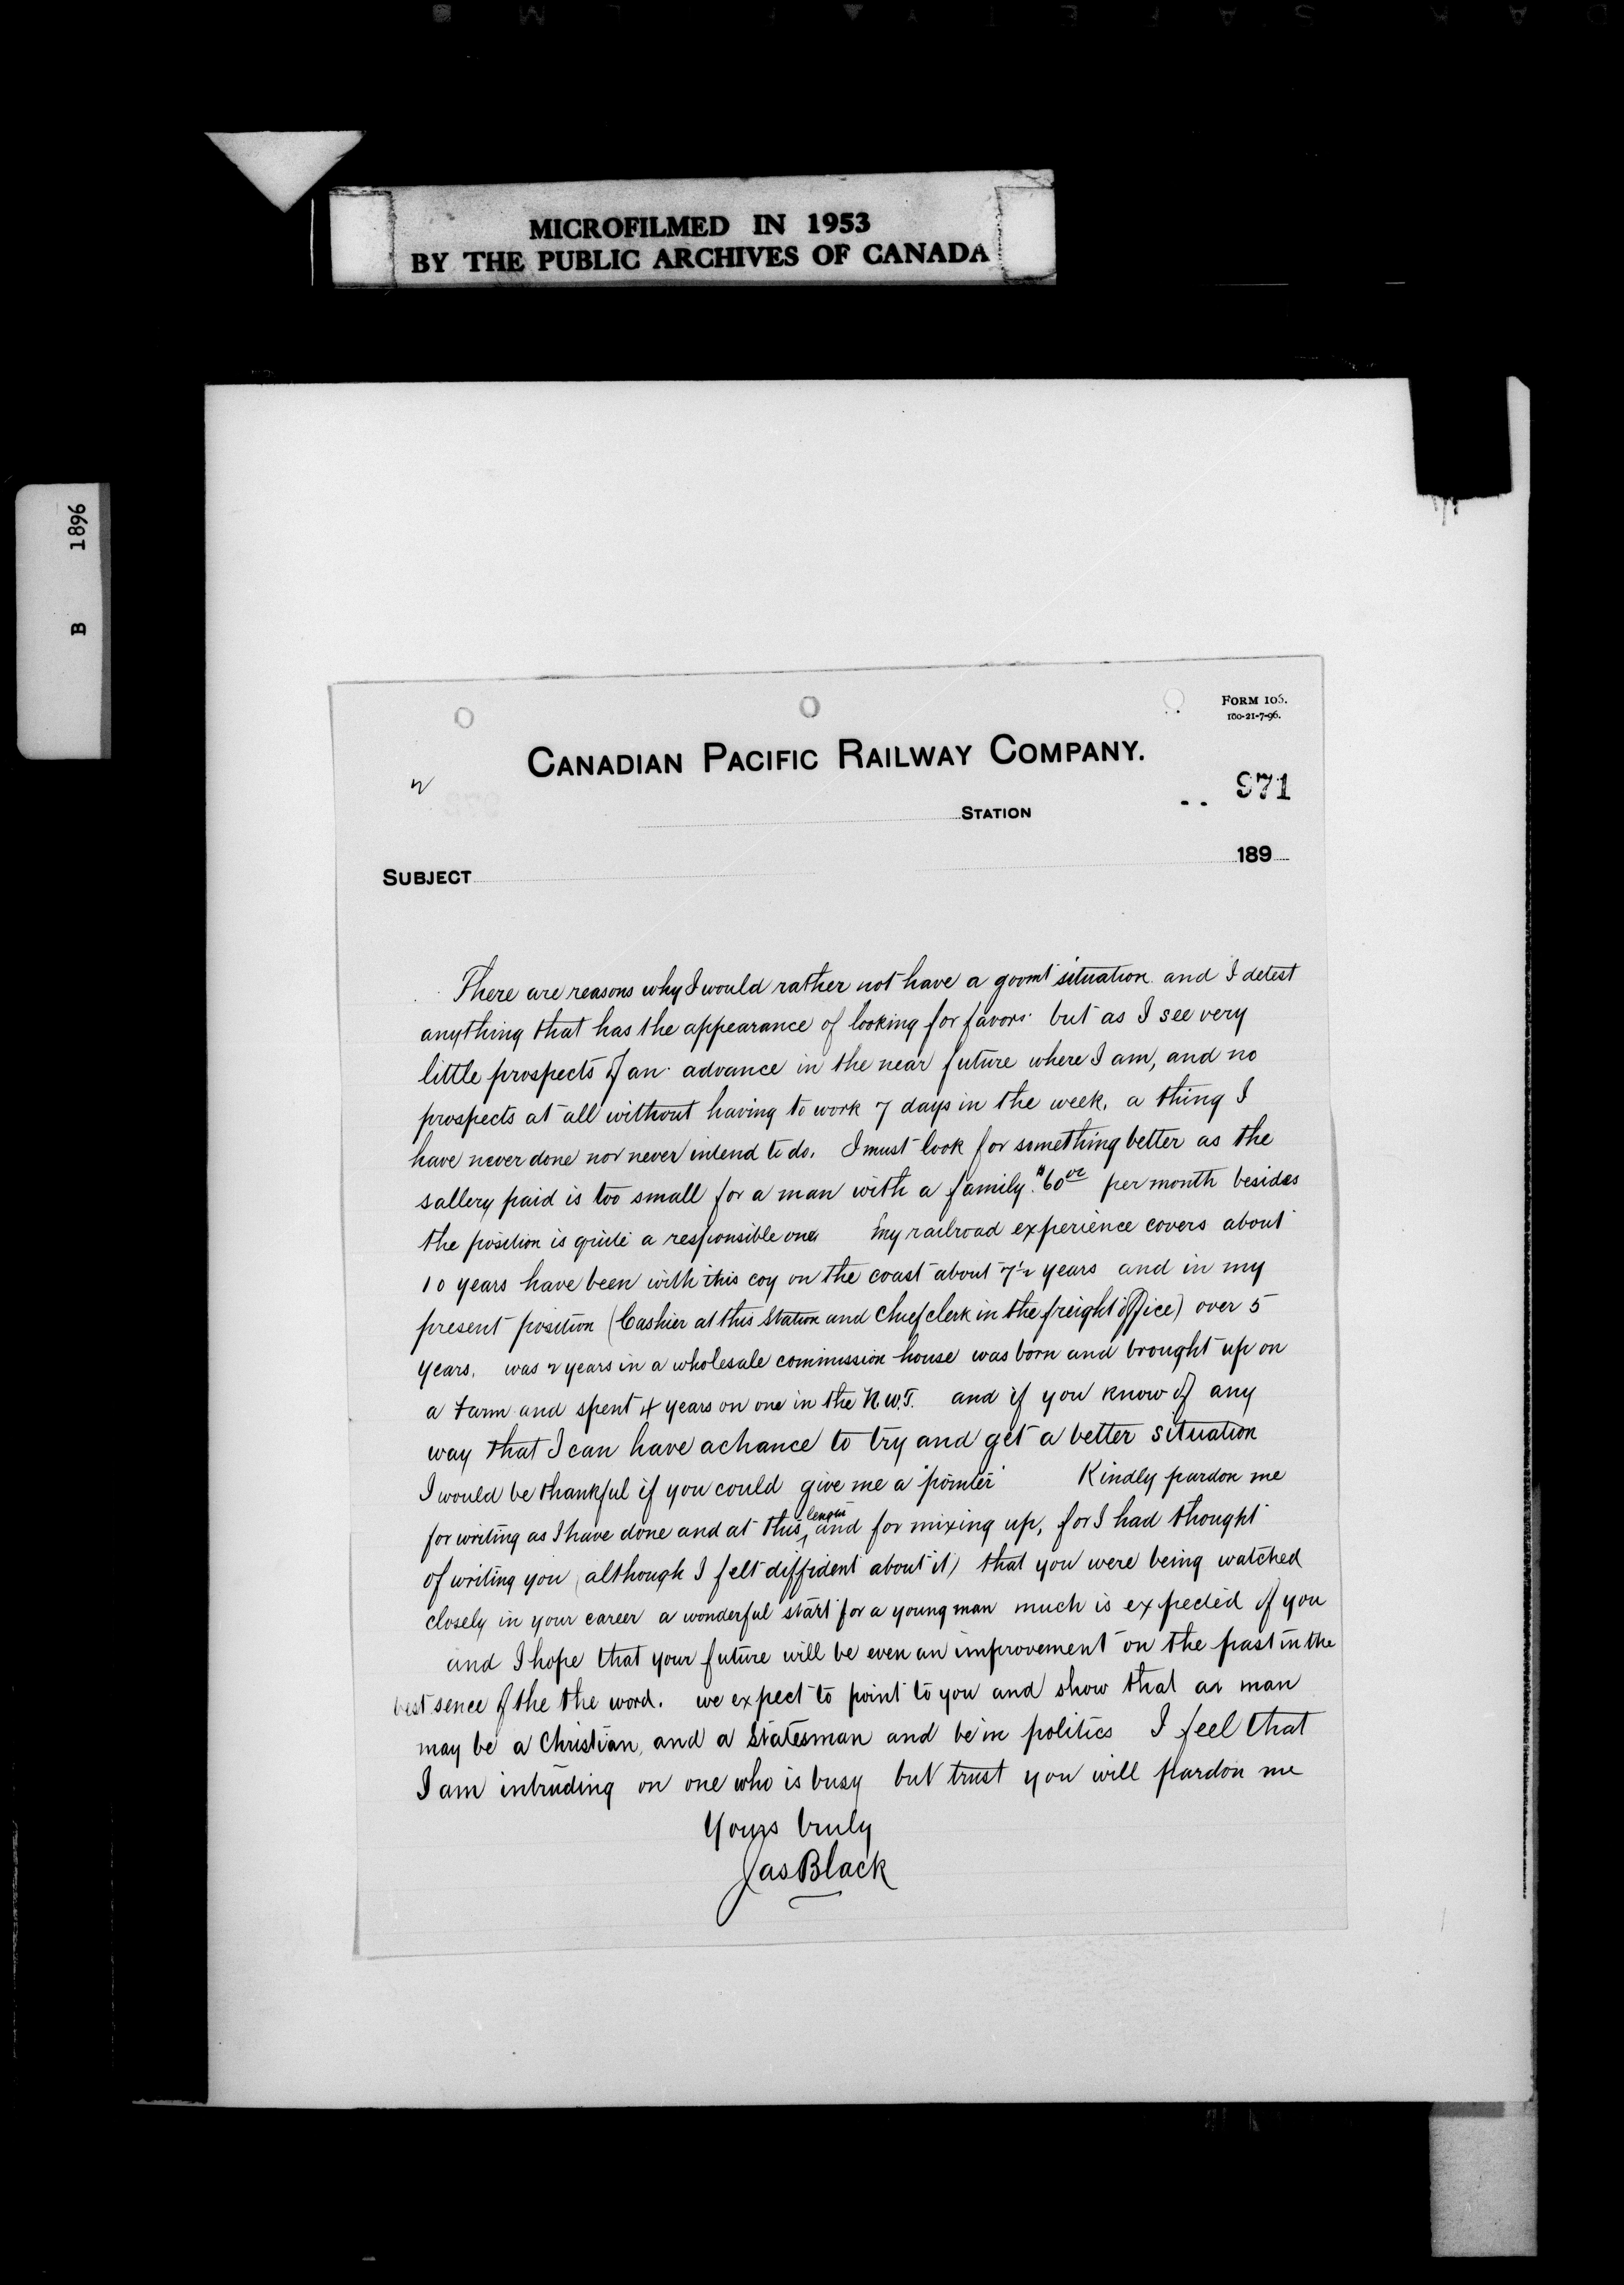 MICROFILMED IN 1953
BY THE PUBLIC ARCHIVES OF CANADA
B 1896
FORM 106.
100-21-7-96.
CANADIAN PACIFIC RAILWAY COMPANY.
2
971
STATION
189
SUBJECT
There are reasons why I would rather not have a govmt situation and I detest
anything that has the appearance of looking for favors but as I see very
little prospects of an advance in the near future where I am, and no
prospects at all without having to work 7 days in the week, a thing I
have never done nor never intend to do. I must look for something better as the
sallery paid is too small for a man with a family. $60 per month besides
the position is quite a responsible one my railroad experience covers about
10 years have been with this coy on the coast about 7½ years and in my
present position (Cashier at this Station and Chief clerk in the freight office) over 5
years. was 2 years in a wholesale commission house was born and brought up on
a farm and spent 4 years on one in the N.W.T. and if you know of any
way that I can have a chance to try and get a better situation
I would be thankful if you could give me a "pointer" Kindly pardon me
for writing as I have done and at this length and for mixing up, for I had thought
of writing you (although I felt diffident about it) that you were being watched
closely in your career a wonderful start for a young man much is expected of you
and I hope that your future will be even an improvement on the past in the
best sence of the the word. we expect to point to you and show that a man
may be a Christian, and a Statesman and be in politics I feel that
I am intruding on one who is busy but trust you will pardon me
Yours truly
Jas Black